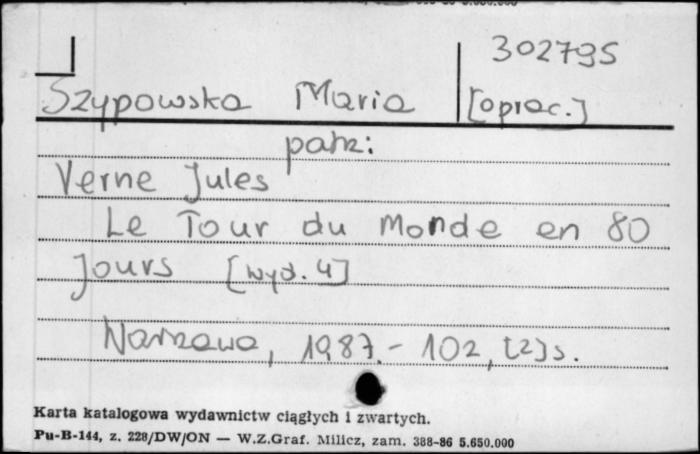 302795
Szypowska Maria [oprac.]
patrz:
Verne Jules
Le Tour du Monde en 80
Jours [wyd. 4]
Warszawa, 1987. - 102, [2] s.
Karta katalogowa wydawnictw ciągłych i zwartych.
Pu-B-144, z. 228/DW/ON — W.Z.Graf. Milicz, zam. 388-86 5.650.000